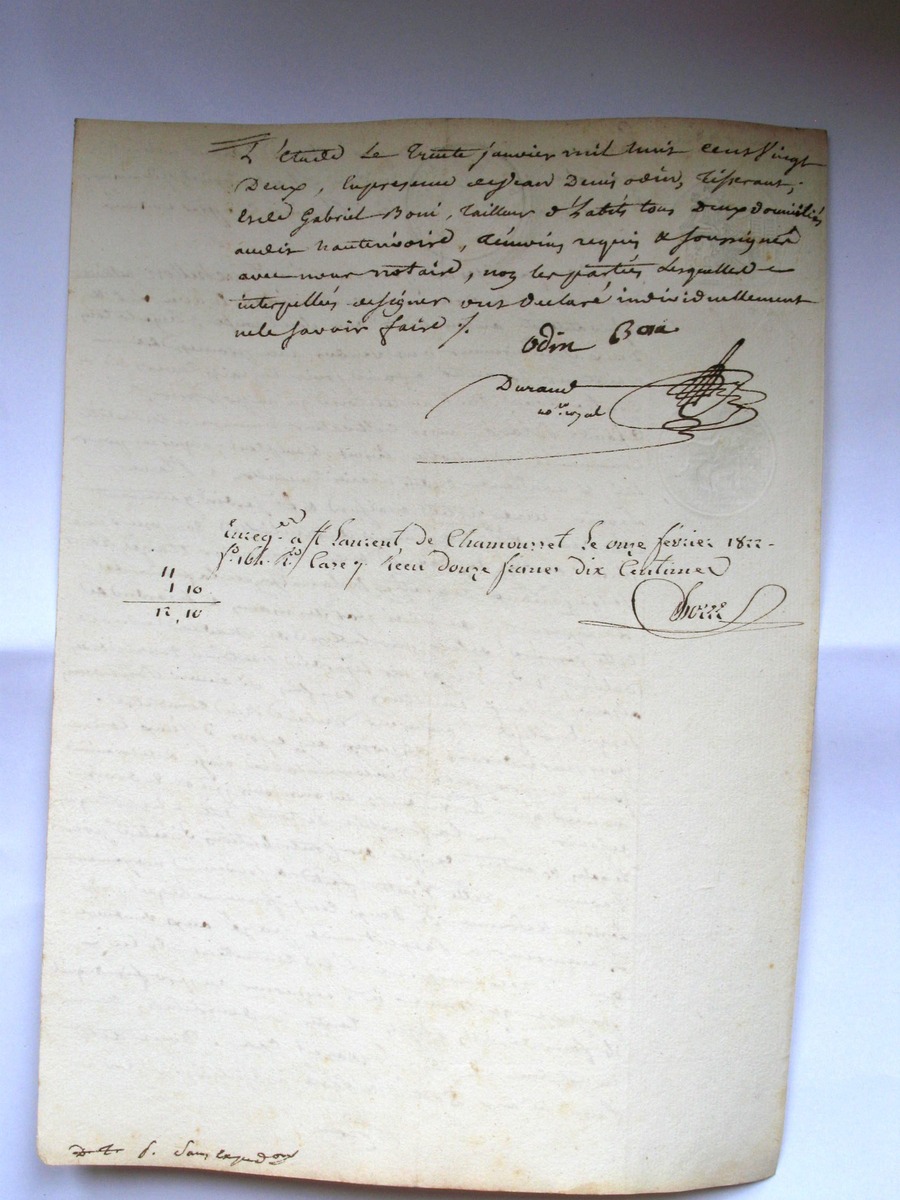 L'étude Le Trente janvier mil huit cent Vingt
Deux, En presence de Jean Denis odin, Tisserant,
Et de Gabriel Boni, Tailleur d'habits tous Deux domiciliés
audit hauterivoire, témoins requis & soussignés
avec nous notaire, non les parties Lesquelles
interpellés de signer ont déclaré individuellement
ne le savoir faire ./.
odin Boni
Durand
nre royal
Enregré a St Laurent de Chamousset Le onze février 1822
fo. 164. Ro Case 7. Reçu Douze francs dix Centimes
11
1 10
12, 10